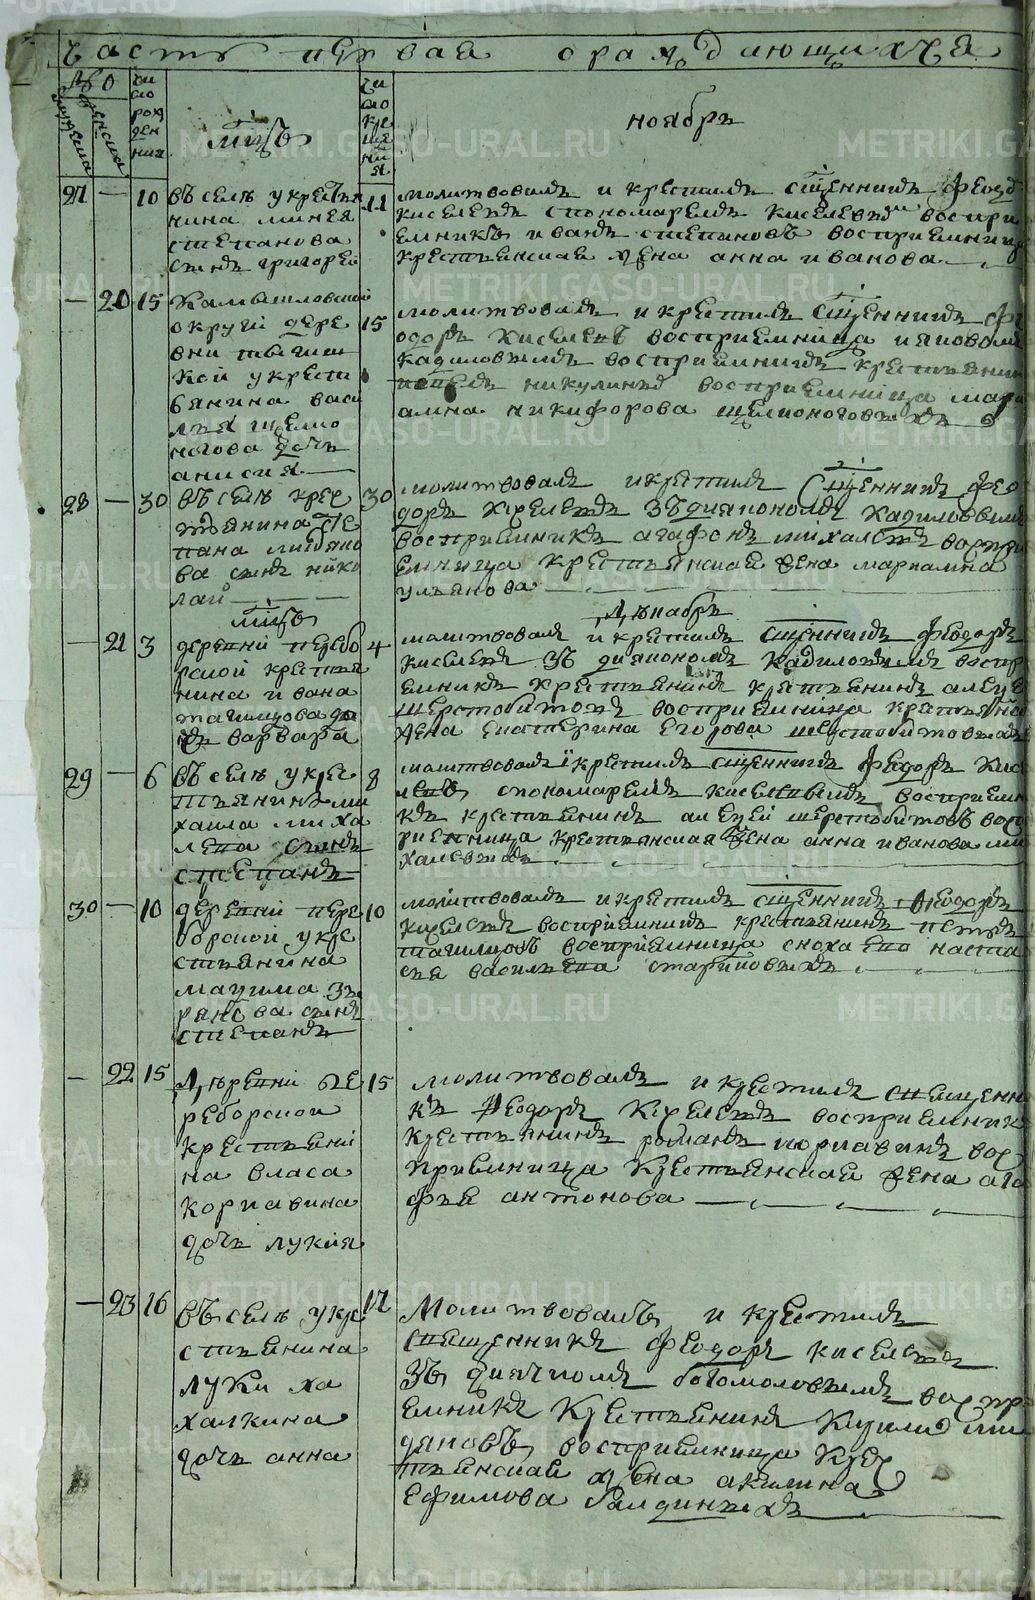 часть первая о раждающихся
№ о
мужеска
женска
число рождения
мсцъ
число крещения
ноябрь
27 — 10
въ селѣ у крестья
нина минея
степанова
сынъ григорей
11
молитвовалъ и крестилъ сщенникъ феод
киселевъ спономаремъ киселевымъ воспри
емникъ иванъ степановъ восприемница
крестьянская жена анна иванова
— 20 15
Камышловской
округи дере
вни
кой у крест
ьянина васи
лья щелко
ногова дочь
анисия
15
молитвовалъ и крестилъ сщенникъ фе
одоръ киселевъ
кадиловымъ восприемникъ крестьянин
никулинъ восприемница мари
амна никифорова щелконоговыхъ
28 — 30
въ селѣ крес
тьянина сте
пана
ва сынъ нико
лай
30
молитвовалъ и крестилъ сщенникъ фео
доръ киселевъ зъ дияпономъ кадиловым
восприемникъ агафонъ михалевъ воспри
емница крестьянская жена мариамна
ульянова
мсцъ
декабрь
— 21 3
деревни перебо
рской крестья
нина ивана
ташлыкова до
чь варвара
4
молитвовалъ и крестилъ сщенникъ феодоръ
киселевъ зъ дияпономъ кадиловымъ воспр
емникъ крестьянинъ крестьянинъ алеѯе
шерстобитовъ восприемница крестьянска
жена екатерина егорова шерстобитовыхъ
29 — 6
въ селѣ у крес
тьянина ми
хаила миха
лева сынъ
степанъ
8
молитвовалъ и крестилъ сщенникъ феодоръ кис
левъ спономаремъ киселевымъ восприемн
къ крестьянинъ алеѯей шерстобитовъ вос
риемница крестьянская жена анна иванова ми
халевыхъ
30 — 10
деревни пере
борской у кре
стьянина
маѯима зы
рянова сынъ
степанъ
10
молитвовалъ и крестилъ сщенникъ феодоръ
киселевъ восприемникъ крестьянинъ петръ
ташлыковъ восприемница сноха его наста
сья васильева стариковыхъ
— 22 15
деревни пе
реборской
крестьяни
на власа
корпавина
дочь лукия
15
молитвовалъ и крестилъ священни
къ феодоръ киселевъ восприемникъ
крестьянинъ романъ корпавинъ вос
приемница крестьянская жена ага
фья антонова
— 23 16
въ селѣ у кре
стьянина
луки ха
халкина
дочь анна
17
Молитвовалъ и крестилъ
священникъ феодоръ киселевъ
зъ дьячкомъ богомоловымъ воспри
емникъ крестьянинъ
восприемница крес
тьянская жена акилина
ефимова балдиныхъ